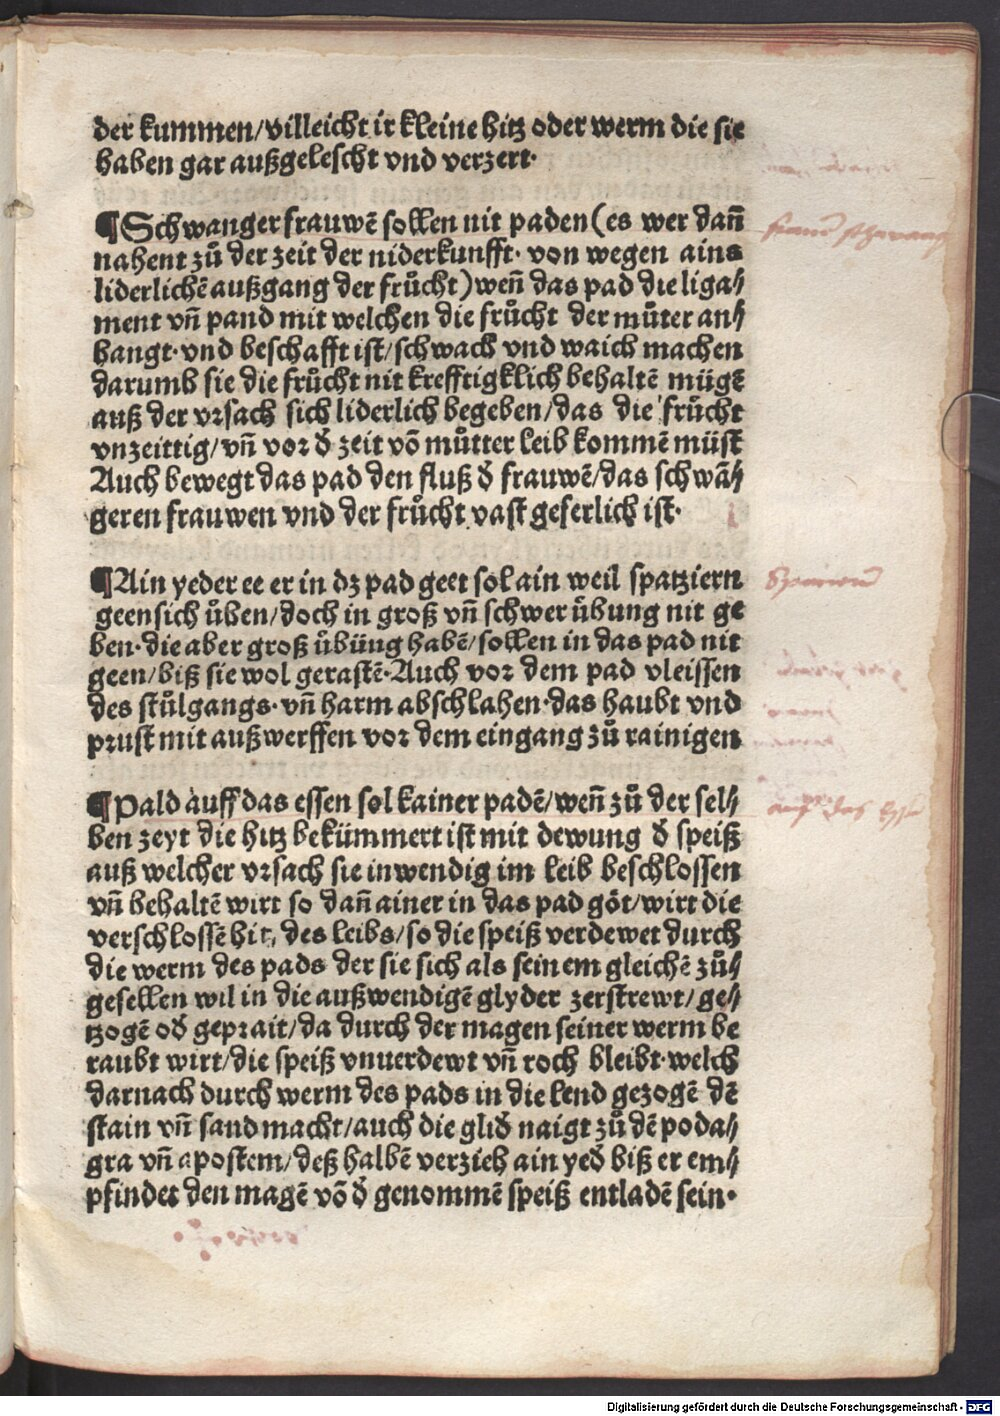 der kummen/villeicht ir kleine hitz oder werm die sie
haben gar außgelescht vnd verzert·
¶Schwanger frauwē sollen nit paden(es wer dañ
nahent zů der zeit der niderkunfft· von wegen ains
liderlichē außgang der frůcht)weñ das pad die liga⸗
ment vñ pand mit welchen die frůcht der můter an⸗
hangt·vnd beschafft ist/schwach vnd waich machen
darumb sie die frůcht nit krefftigklich behaltē mügē
auß der vrsach sich liderlich begeben/das die frůcht
vnzeittig/vñ vor d̄ zeit vō můtter leib kommē müst
Auch bewegt das pad den fluß d̄ frauwē/das schwā⸗
geren frauwen vnd der frůcht vast geferlich ist·
¶Ain yeder ee er in dz pad geet sol ain weil spatziern
geen sich ůben/doch in groß vñ schwer ůbung nit ge
ben·die aber groß ůbüng habē/sollen in das pad nit
geen/biß sie wol gerastē·Auch vor dem pad vleissen
des stůlgangs·vñ harm abschlahen·das haubt vnd
prust mit außwerffen vor dem eingang zů rainigen
¶Pald auff das essen sol kainer padē/weñ zů der sel⸗
ben zeyt die hitz bekümmert ist mit dewung d̄ speiß
auß welcher vrsach sie inwendig im leib beschlossen
vñ behaltē wirt so dañ ainer in das pad göt/wirt die
verschlossē hitz des leibs/so die speiß verdewet durch
die werm des pads der sie sich als seinem gleichē zů⸗
gesellen wil in die außwendigē glyder zerstrewt/ge⸗
tzogē od̄ geprait/da durch der magen seiner werm be
raubt wirt/die speiß vnuerdewt vñ roch bleibt·welch
darnach durch werm des pads in die lend gezogē dē
stain vñ sand macht/auch die glid̄ naigt zů dē poda⸗
gra vñ apostem/deß halbē verzieh ain yed̄ biß er em⸗
pfindet den magē vō d̄ genommē speiß entladē sein·
Digitalisierung gefördert durch die Deutsche Forschungsgemeinschaft - DFG